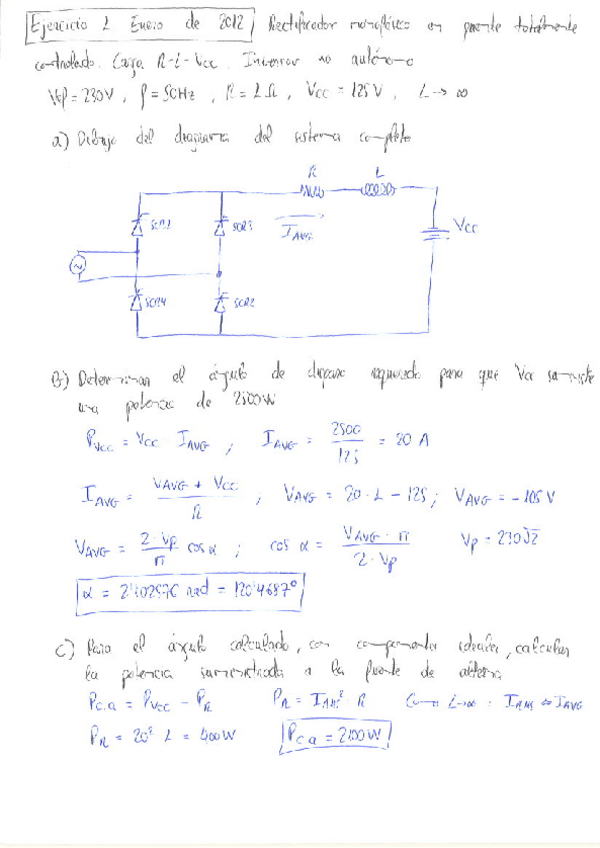 Ejercicio 1 Enero de 2012 Rectificador monofásico en puente totalmente
controlado. Carga R-L-Vcc. Inversor no autónomo
Vef = 230V, f = 50Hz, R = 1Ω, Vcc = 125V, L→∞
a) Dibujo del diagrama del sistema completo
R L
SCR1 SCR3
IAVG
Vcc
SCR4 SCR2
b) Determinar el ángulo de disparo requerido para que Vcc suministre
una potencia de 2500W
PVcc = Vcc · IAVG ; IAVG = 2500/125 = 20 A
IAVG = (VAVG + Vcc)/R ; VAVG = 20·1 - 125 ; VAVG = -105V
VAVG = 2·Vp/π cos α ; cos α = VAVG·π/2·Vp Vp = 230√2
α = 2'102976 rad = 120'4687°
c) Para el ángulo calculado, con componentes ideales, calcular
la potencia suministrada a la fuente de alterna
Pc.a = PVcc - PR PR = IRMS² R Como L→∞ : IRMS ⇔ IAVG
PR = 20² · 1 = 400W Pca = 2100W